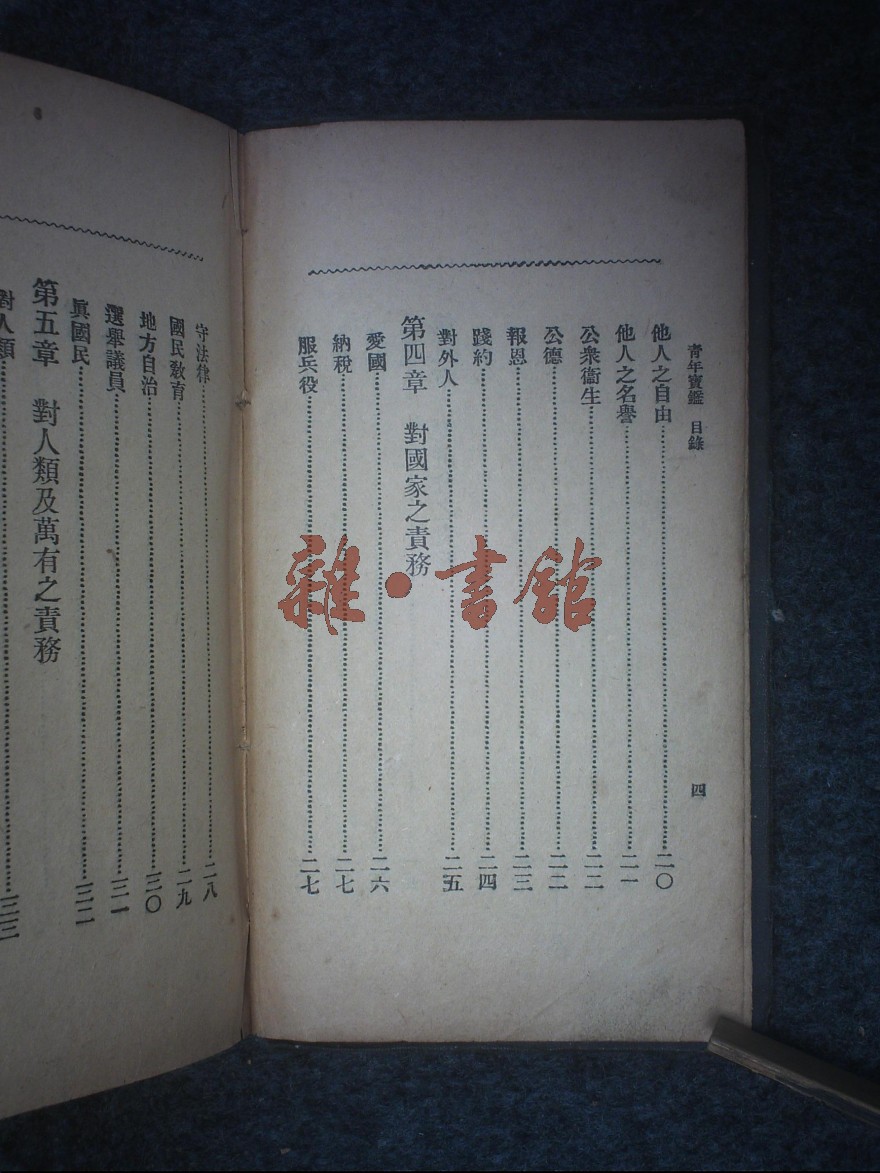 青年寶鑑 目錄
四
他人之自由 二〇
他人之名譽 二一
公衆衞生 二二
公德 二二
報恩 二三
踐約 二四
對外人 二五
第四章 對國家之責務
愛國 二六
納稅 二七
服兵役 二七
守法律 二八
國民敎育 二九
地方自治 三〇
選舉議員 三一
眞國民 三二
第五章 對人類及萬有之責務
對人類 三三
雜·書館